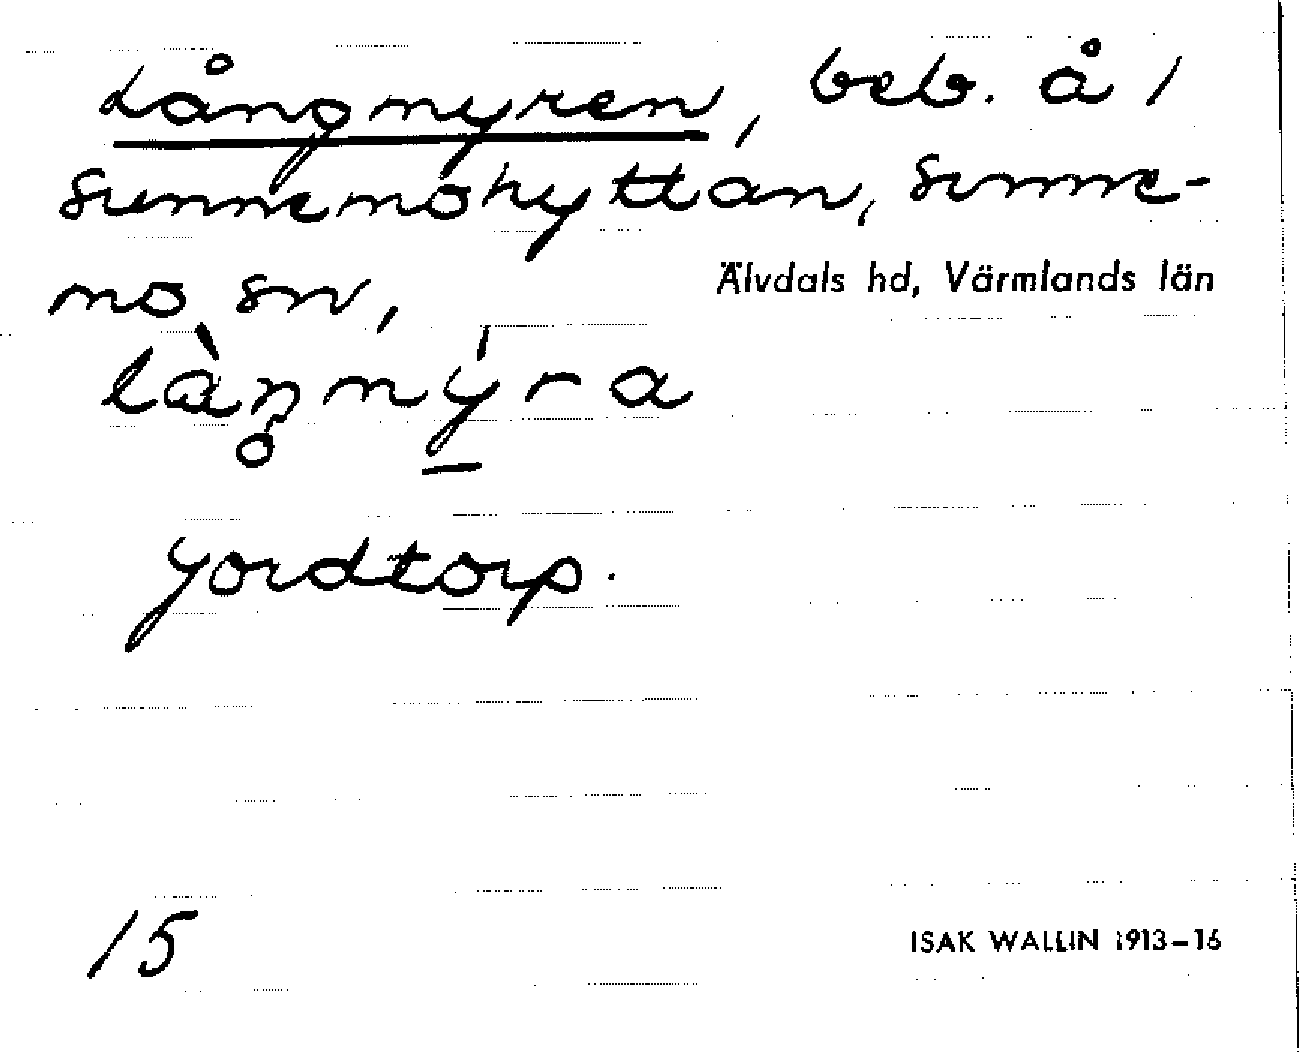 Långmyren, beb. å 1
Sunnemohyttan, Sunne-
mo sn,
Älvdals hd, Värmlands län
làŋ̥mý̠ra
Jordtorp.
15
ISAK WALLIN 1913–16